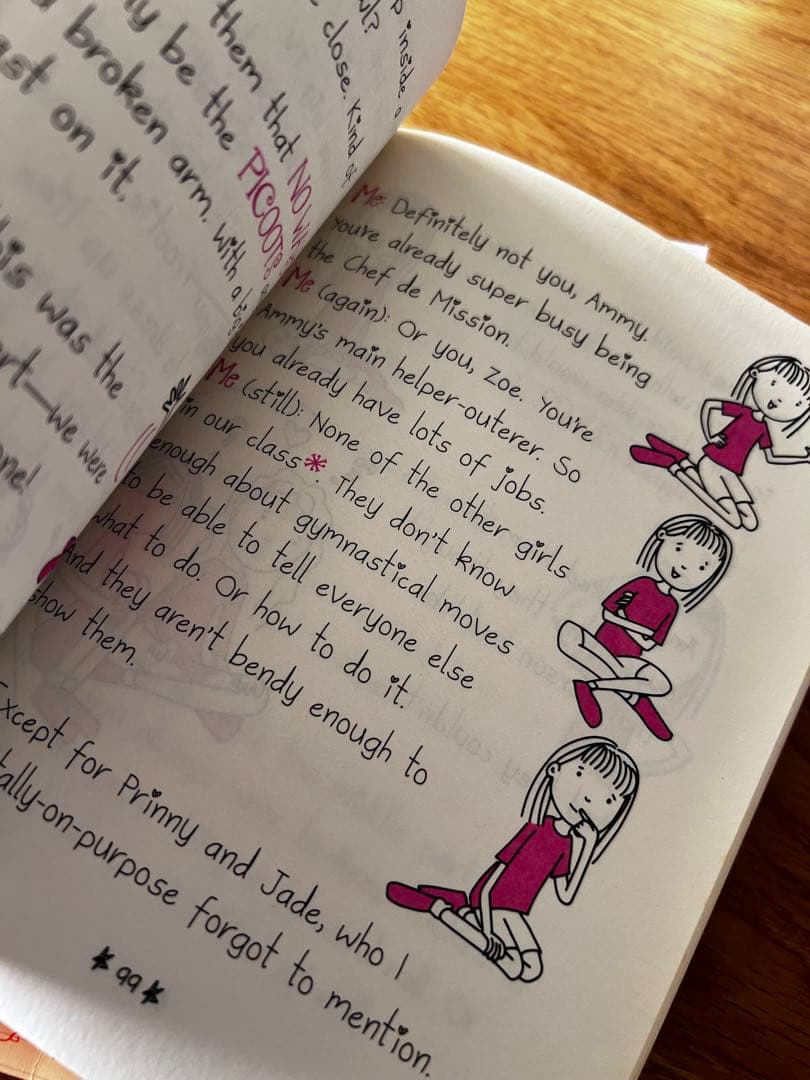 p inside a
wl?
close. Kind of
them that NO WA
ly be the PICOOT
broken arm. with a b
ast on it.
his was the
art—we were
one!
Me: Definitely not you, Ammy.
You're already super busy being
the Chef de Mission.
Me (again): Or you, Zoe. You're
Ammy's main helper-outerer. So
you already have lots of jobs.
Me (still): None of the other girls
in our class*. They don't know
enough about gymnastical moves
to be able to tell everyone else
what to do. Or how to do it.
And they aren't bendy enough to
show them.
Except for Prinny and Jade, who I
tally-on-purpose forgot to mention.
* 99 *